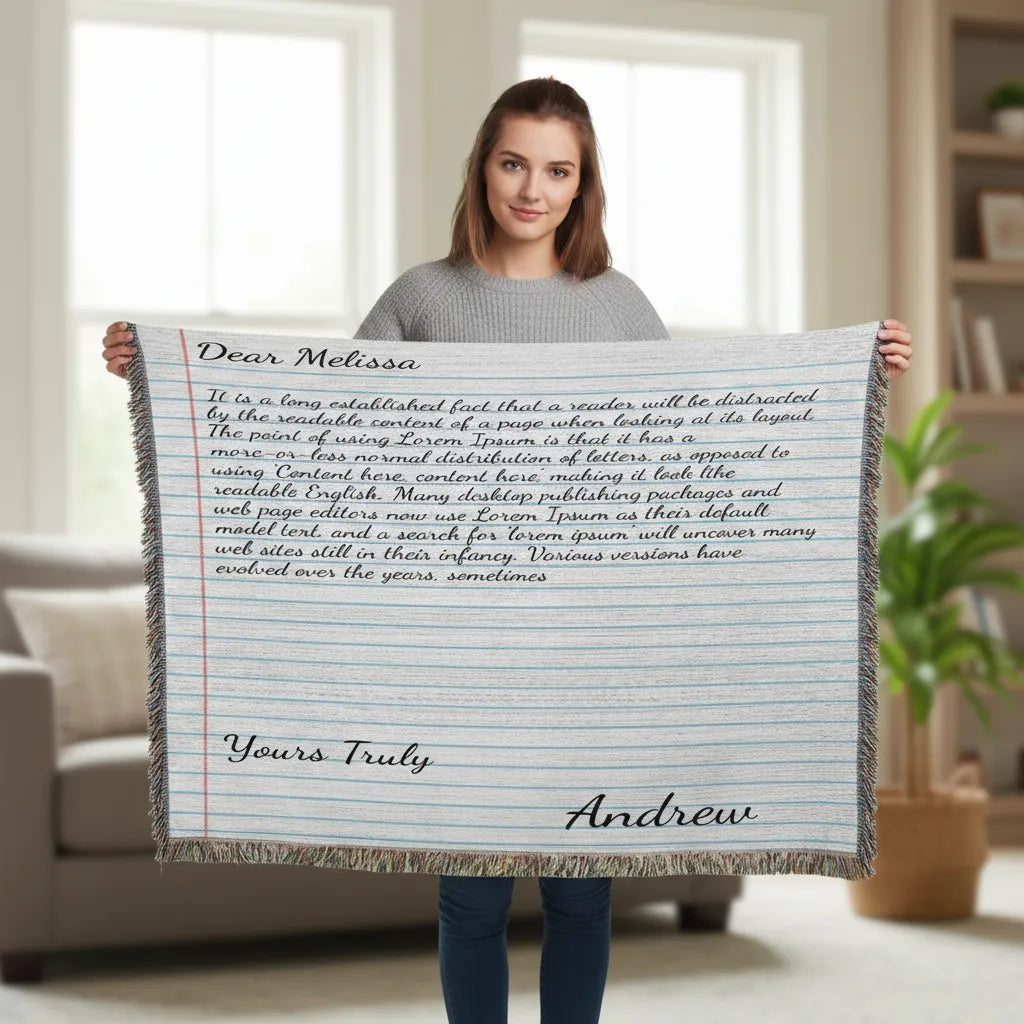 Dear Melissa
It is a long established fact that a reader will be distracted
by the readable content of a page when looking at its layout.
The point of using Lorem Ipsum is that it has a
more-or-less normal distribution of letters, as opposed to
using 'Content here, content here', making it look like
readable English. Many desktop publishing packages and
web page editors now use Lorem Ipsum as their default
model text, and a search for 'lorem ipsum' will uncover many
web sites still in their infancy. Various versions have
evolved over the years, sometimes
Yours Truly
Andrew